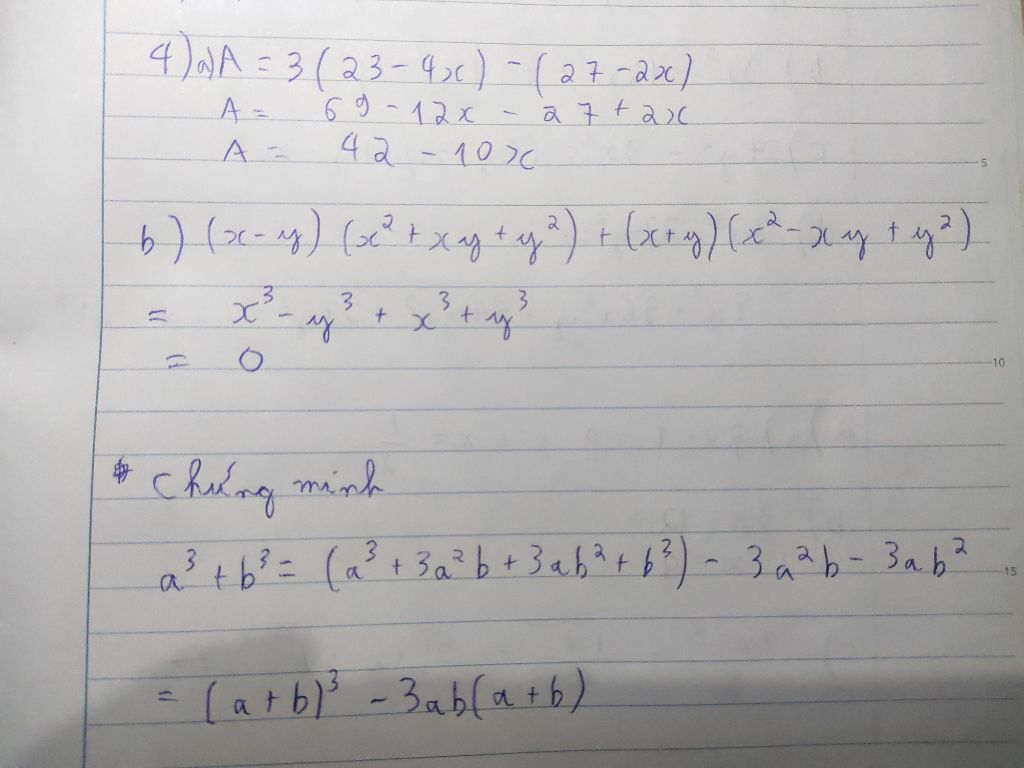 4) a) A = 3(23 - 4x) - (27 - 2x)
A = 69 - 12x - 27 + 2x
A = 42 - 10x
5
b) (x - y)(x² + xy + y²) + (x + y)(x² - xy + y²)
= x³ - y³ + x³ + y³
= 0
10
* Chứng minh
a³ + b³ = (a³ + 3a²b + 3ab² + b³) - 3a²b - 3ab²
15
= (a + b)³ - 3ab(a + b)